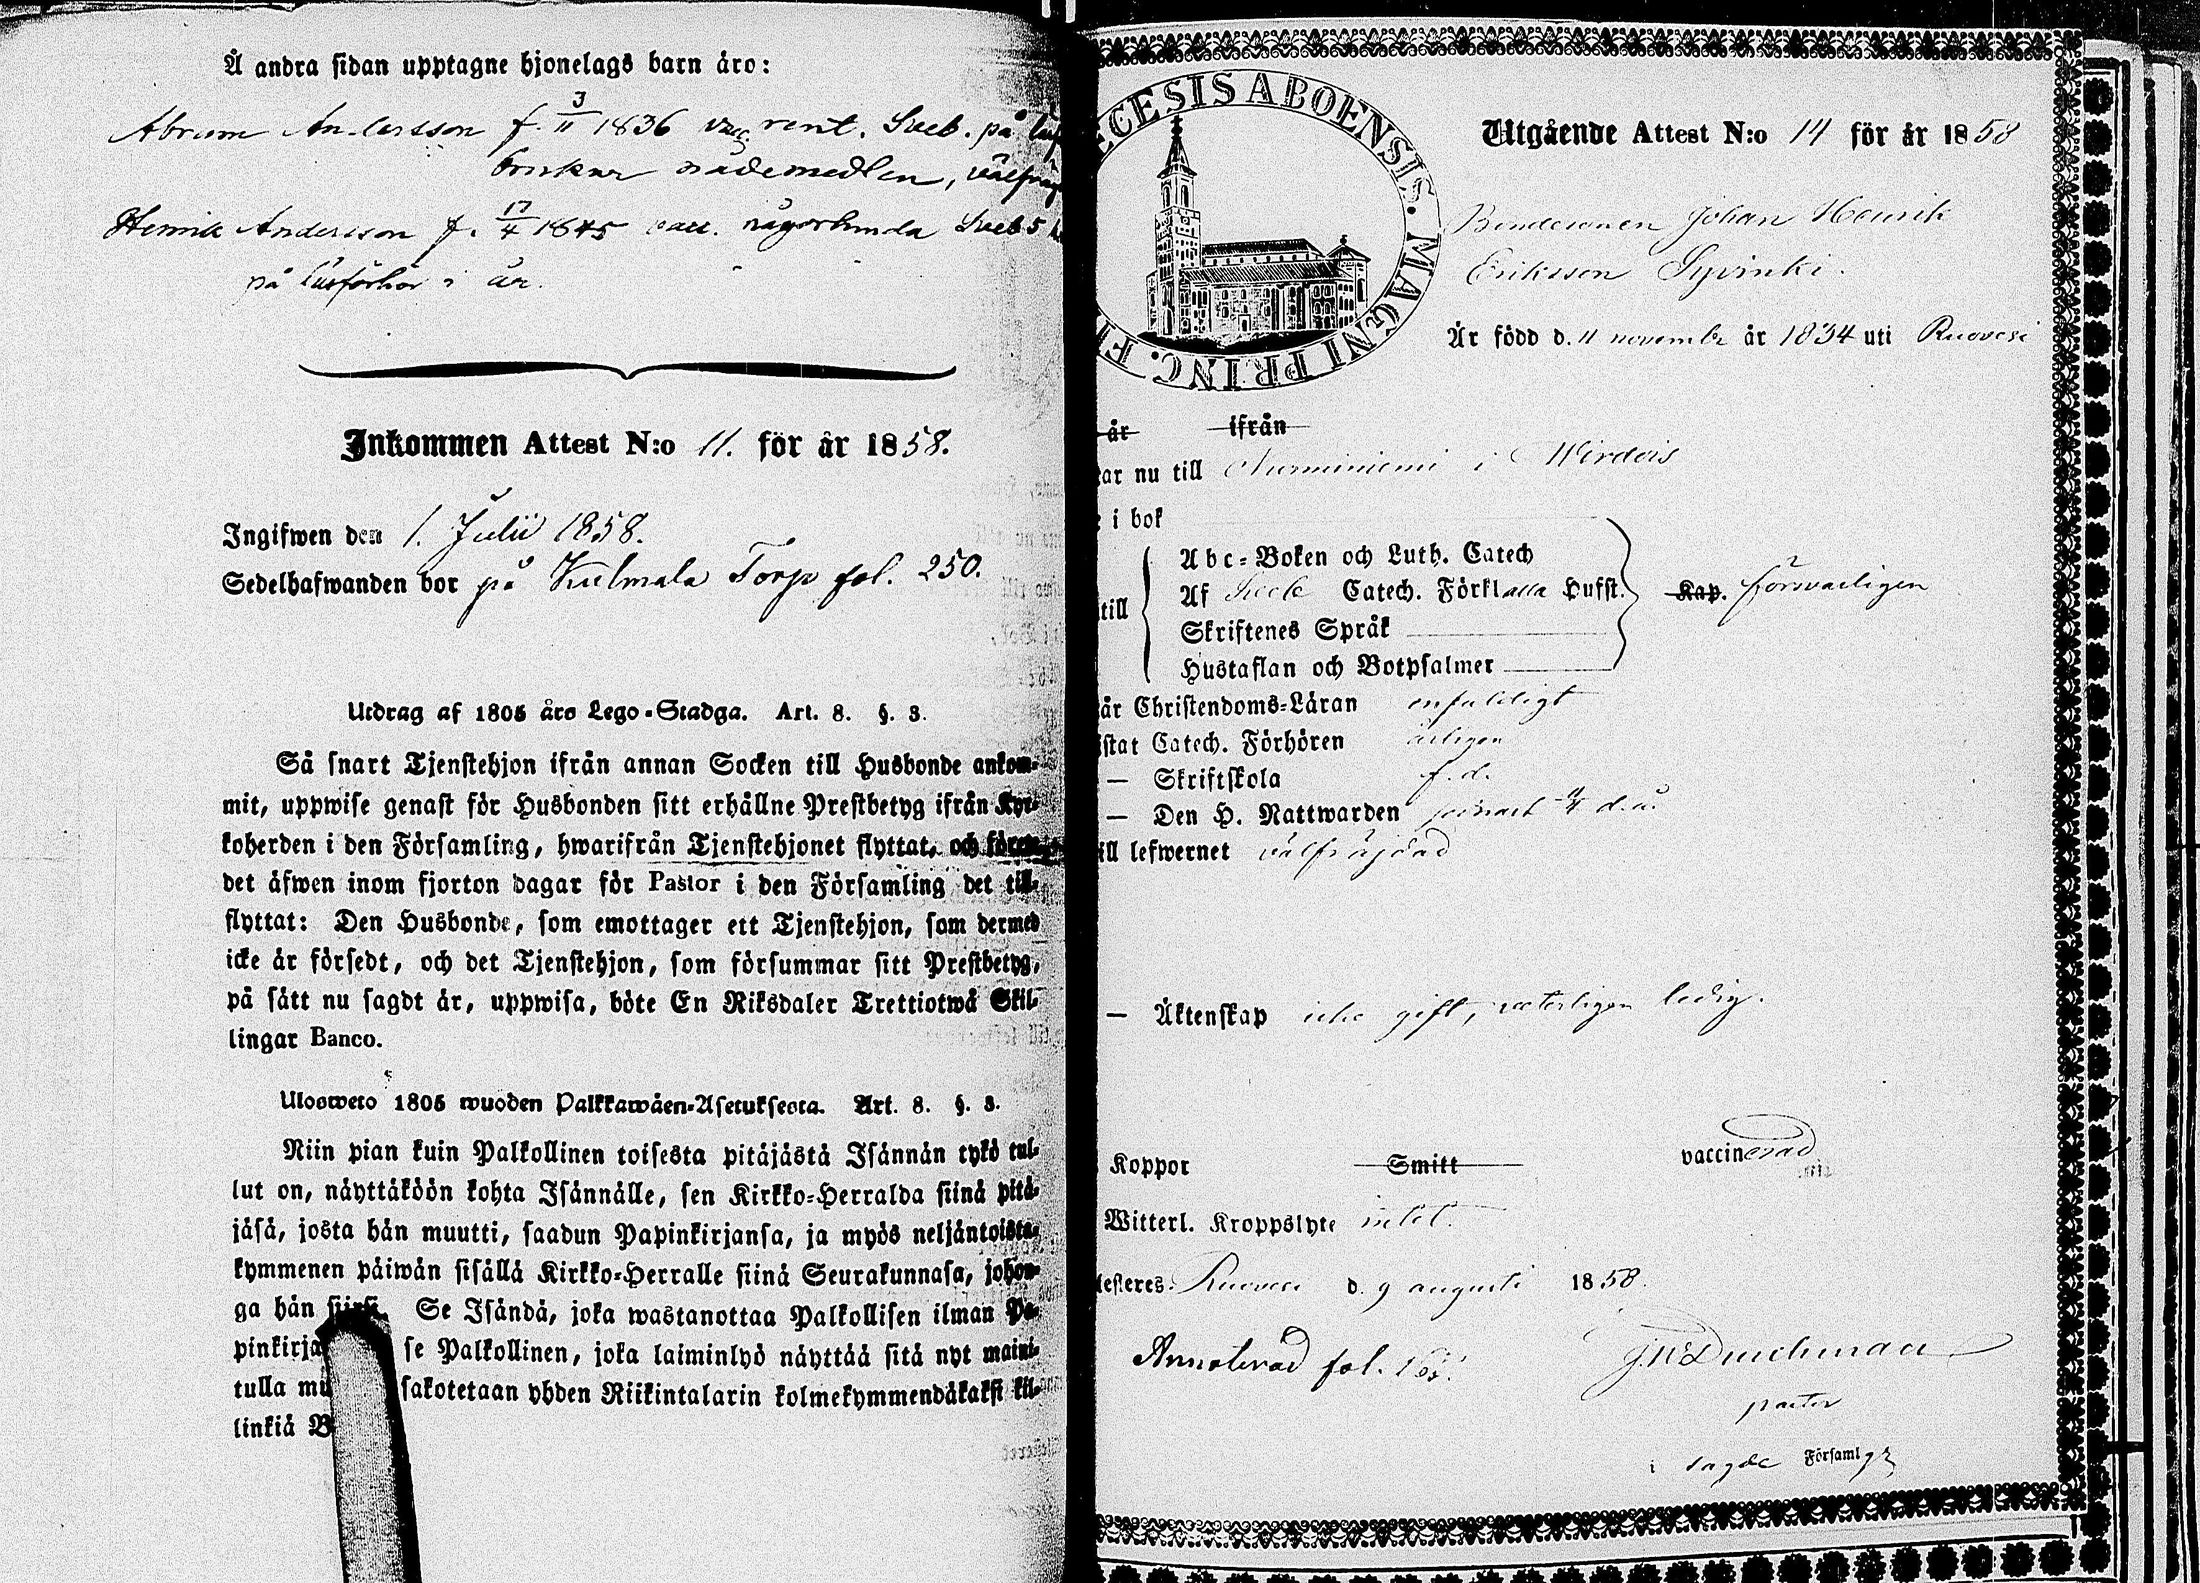 Å andra sidan upptagne hjonelags barn äro:
Abram Andersson f. 3/11 1836 vacc. rent. Sveb. på
brukar nådemedlen,
Henrik Andersson f. 17/4 1845 vacc. någorlunda Sveb
på läsförhör i år.
Inkommen Attest N:o 11. för år 1858.
Ingifwen den 1. Julii 1858.
Sedelhafwanden bor på Kulmala Torp fol. 250.
Utdrag af 1805 års Lego-Stadga. Art. 8. §. 3.
Så snart Tjenstehjon ifrån annan Socken till Husbonde ankom-
mit, uppwise genast för Husbonden sitt erhållne Prestbetyg ifrån Kyr-
koherden i den Församling, hwarifrån Tjenstehjonet flyttat, och förete
det äfwen inom fjorton dagar för Pastor i den Församling det till-
flyttat: Den Husbonde, som emottager ett Tjenstehjon, som dermed
icke är försedt, och det Tjenstehjon, som försummar sitt Prestbetyg,
på sätt nu sagdt är, uppwisa, böte En Riksdaler Trettiotwå Skil-
lingar Banco.
Ulosweto 1805 wuoden Palkkawäen-Asetuksesta. Art. 8. §. 3.
Niin pian kuin Palkollinen toisesta pitäjästä Isännän tykö tul-
lut on, näyttäköön kohta Isännälle, sen Kirkko-Herralda siinä pitä-
jäsä, josta hän muutti, saadun Papinkirjansa, ja myös neljäntoista-
kymmenen päiwän sisällä Kirkko-Herralle siinä Seurakunnasa, johon-
ga hän siirsi. Se Isändä, joka wastanottaa Palkollisen ilman Pa-
pinkirja se Palkollinen, joka laiminlyö näyttää sitä nyt maini-
tulla mu sakotetaan yhden Riikintalarin kolmekymmendäkaksi kil-
linkiä B
ECESIS ABOENSIS. MAGNI PRINC. F
Utgående Attest N:o 14 för år 1858
Bondesonen Johan Henrik
Eriksson Syvinki.
Är född d. 11 novembr år 1834 uti Ruovesi
år ifrån
ar nu till Nurminiemi i Wirdois
i bok
till
Abc-Boken och Luth. Catech
Af Sveb Catech. Förkl alla Hufst. Kap. försvarligen
Skriftenes Språk
Hustaflan och Botpsalmer
år Christendoms-Läran enfaldigt
istat Catech. Förhören årligen
— Skriftskola f. d.
— Den H. Nattwarden senast d. å.
ill lefwernet välfräjdad
— Äktenskap icke gift, veterligen ledig.
Koppor Smitt vaccinerad
Witterl. Kroppslyte intet.
testeres. Ruovesi d. 9 augusti 1858.
Annoterad fol.
pastor
i sagde Församlg